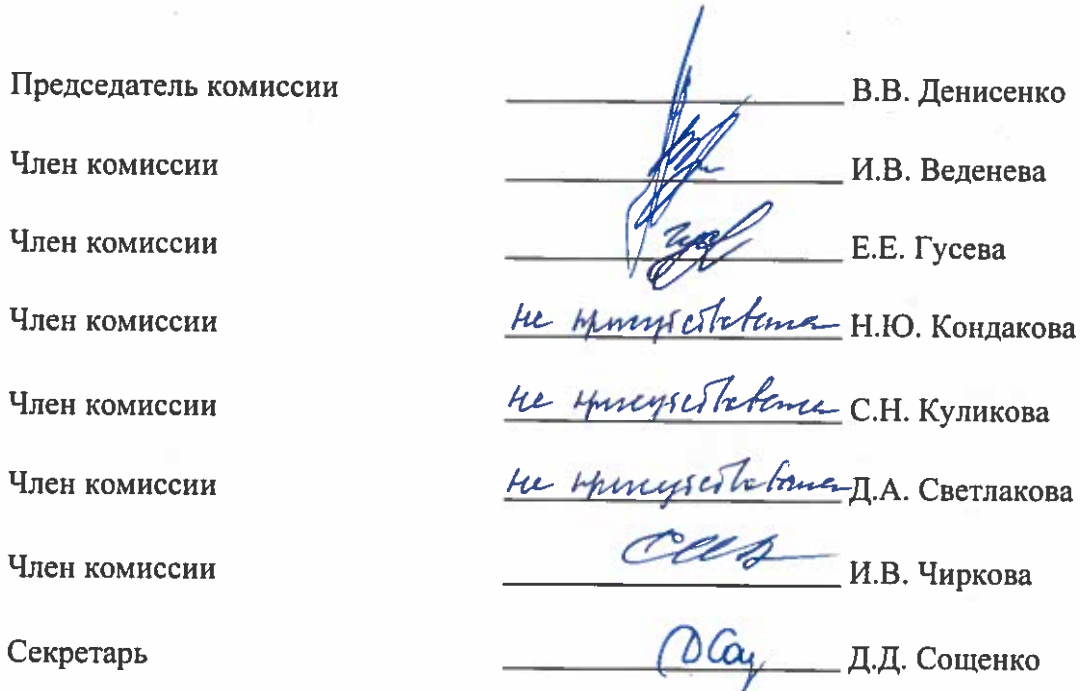 Председатель комиссии В.В. Денисенко
Член комиссии И.В. Веденева
Член комиссии Е.Е. Гусева
Член комиссии не присутствовала Н.Ю. Кондакова
Член комиссии не присутствовала С.Н. Куликова
Член комиссии не присутствовала Д.А. Светлакова
Член комиссии И.В. Чиркова
Секретарь Д.Д. Сощенко